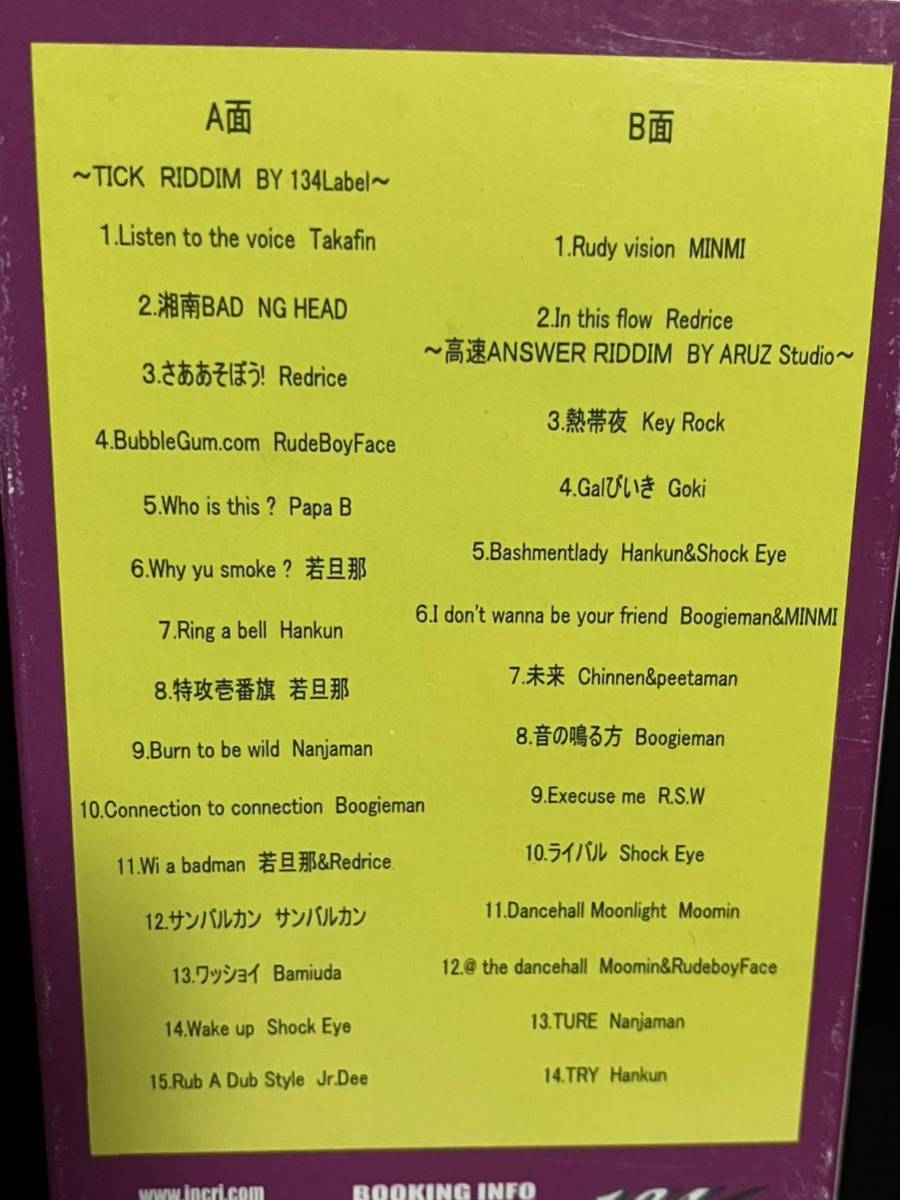 A面
～TICK RIDDIM BY 134Label～
1.Listen to the voice Takafin
2.湘南BAD NG HEAD
3.さああそぼう! Redrice
4.BubbleGum.com RudeBoyFace
5.Who is this ? Papa B
6.Why yu smoke ? 若旦那
7.Ring a bell Hankun
8.特攻壱番旗 若旦那
9.Burn to be wild Nanjaman
10.Connection to connection Boogieman
11.Wi a badman 若旦那&Redrice
12.サンバルカン サンバルカン
13.ワッショイ Bamiuda
14.Wake up Shock Eye
15.Rub A Dub Style Jr.Dee
B面
1.Rudy vision MINMI
2.In this flow Redrice
～高速ANSWER RIDDIM BY ARUZ Studio～
3.熱帯夜 Key Rock
4.Galびいき Goki
5.Bashmentlady Hankun&Shock Eye
6.I don't wanna be your friend Boogieman&MINMI
7.未来 Chinnen&peetaman
8.音の鳴る方 Boogieman
9.Execuse me R.S.W
10.ライバル Shock Eye
11.Dancehall Moonlight Moomin
12.@ the dancehall Moomin&RudeboyFace
13.TURE Nanjaman
14.TRY Hankun
BOOKING INFO